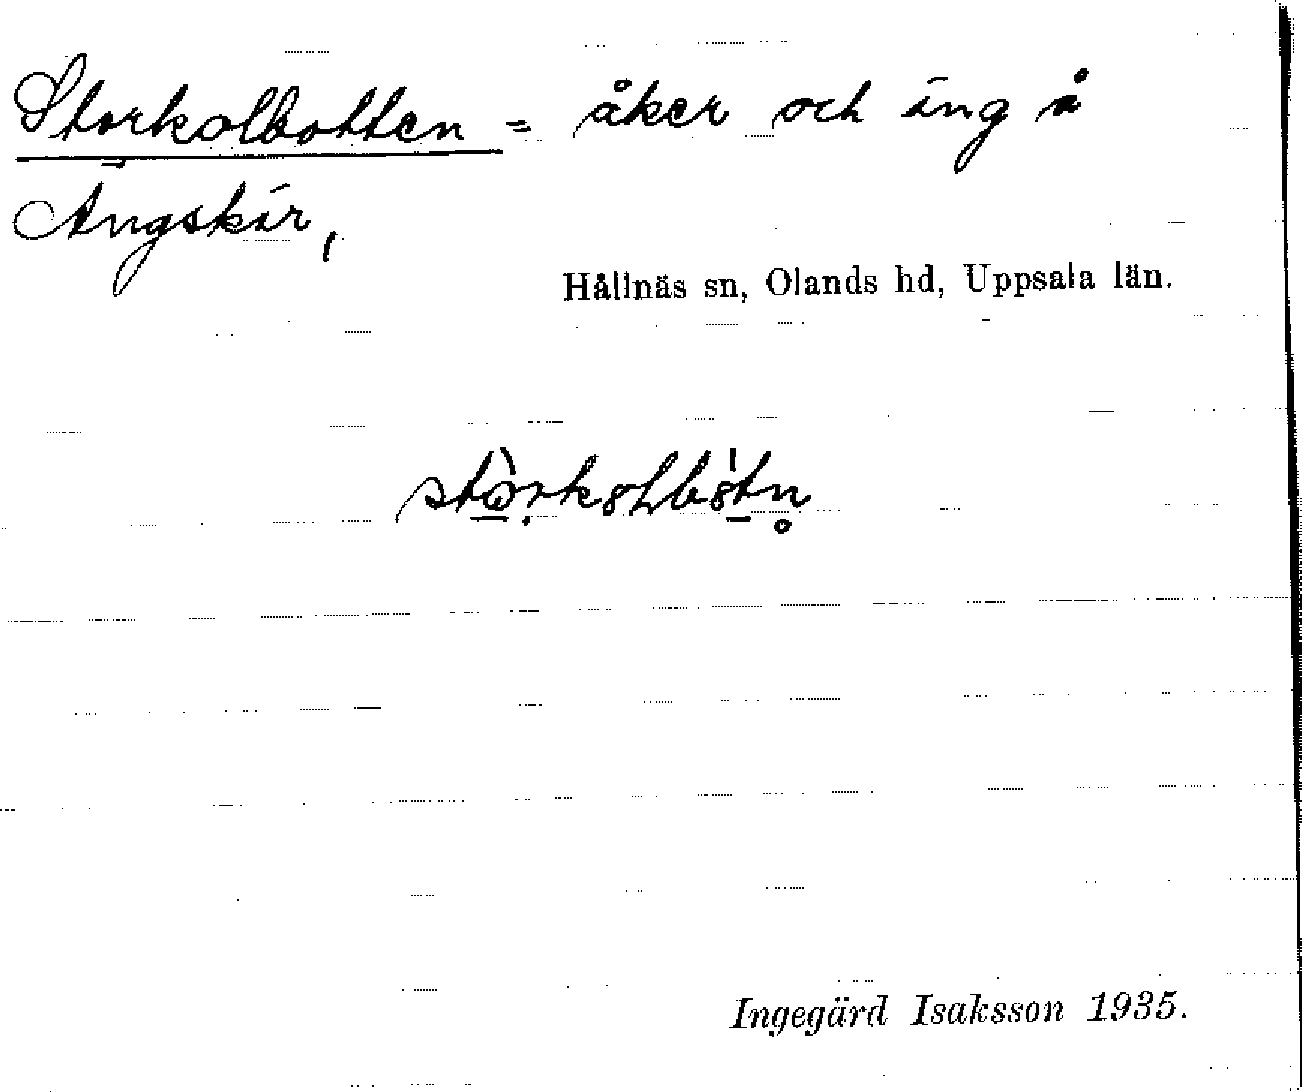 Storkolbotten = åker och äng å
Ängskär,
Hållnäs sn, Olands hd, Uppsala län.
Ingegärd Isaksson 1935.